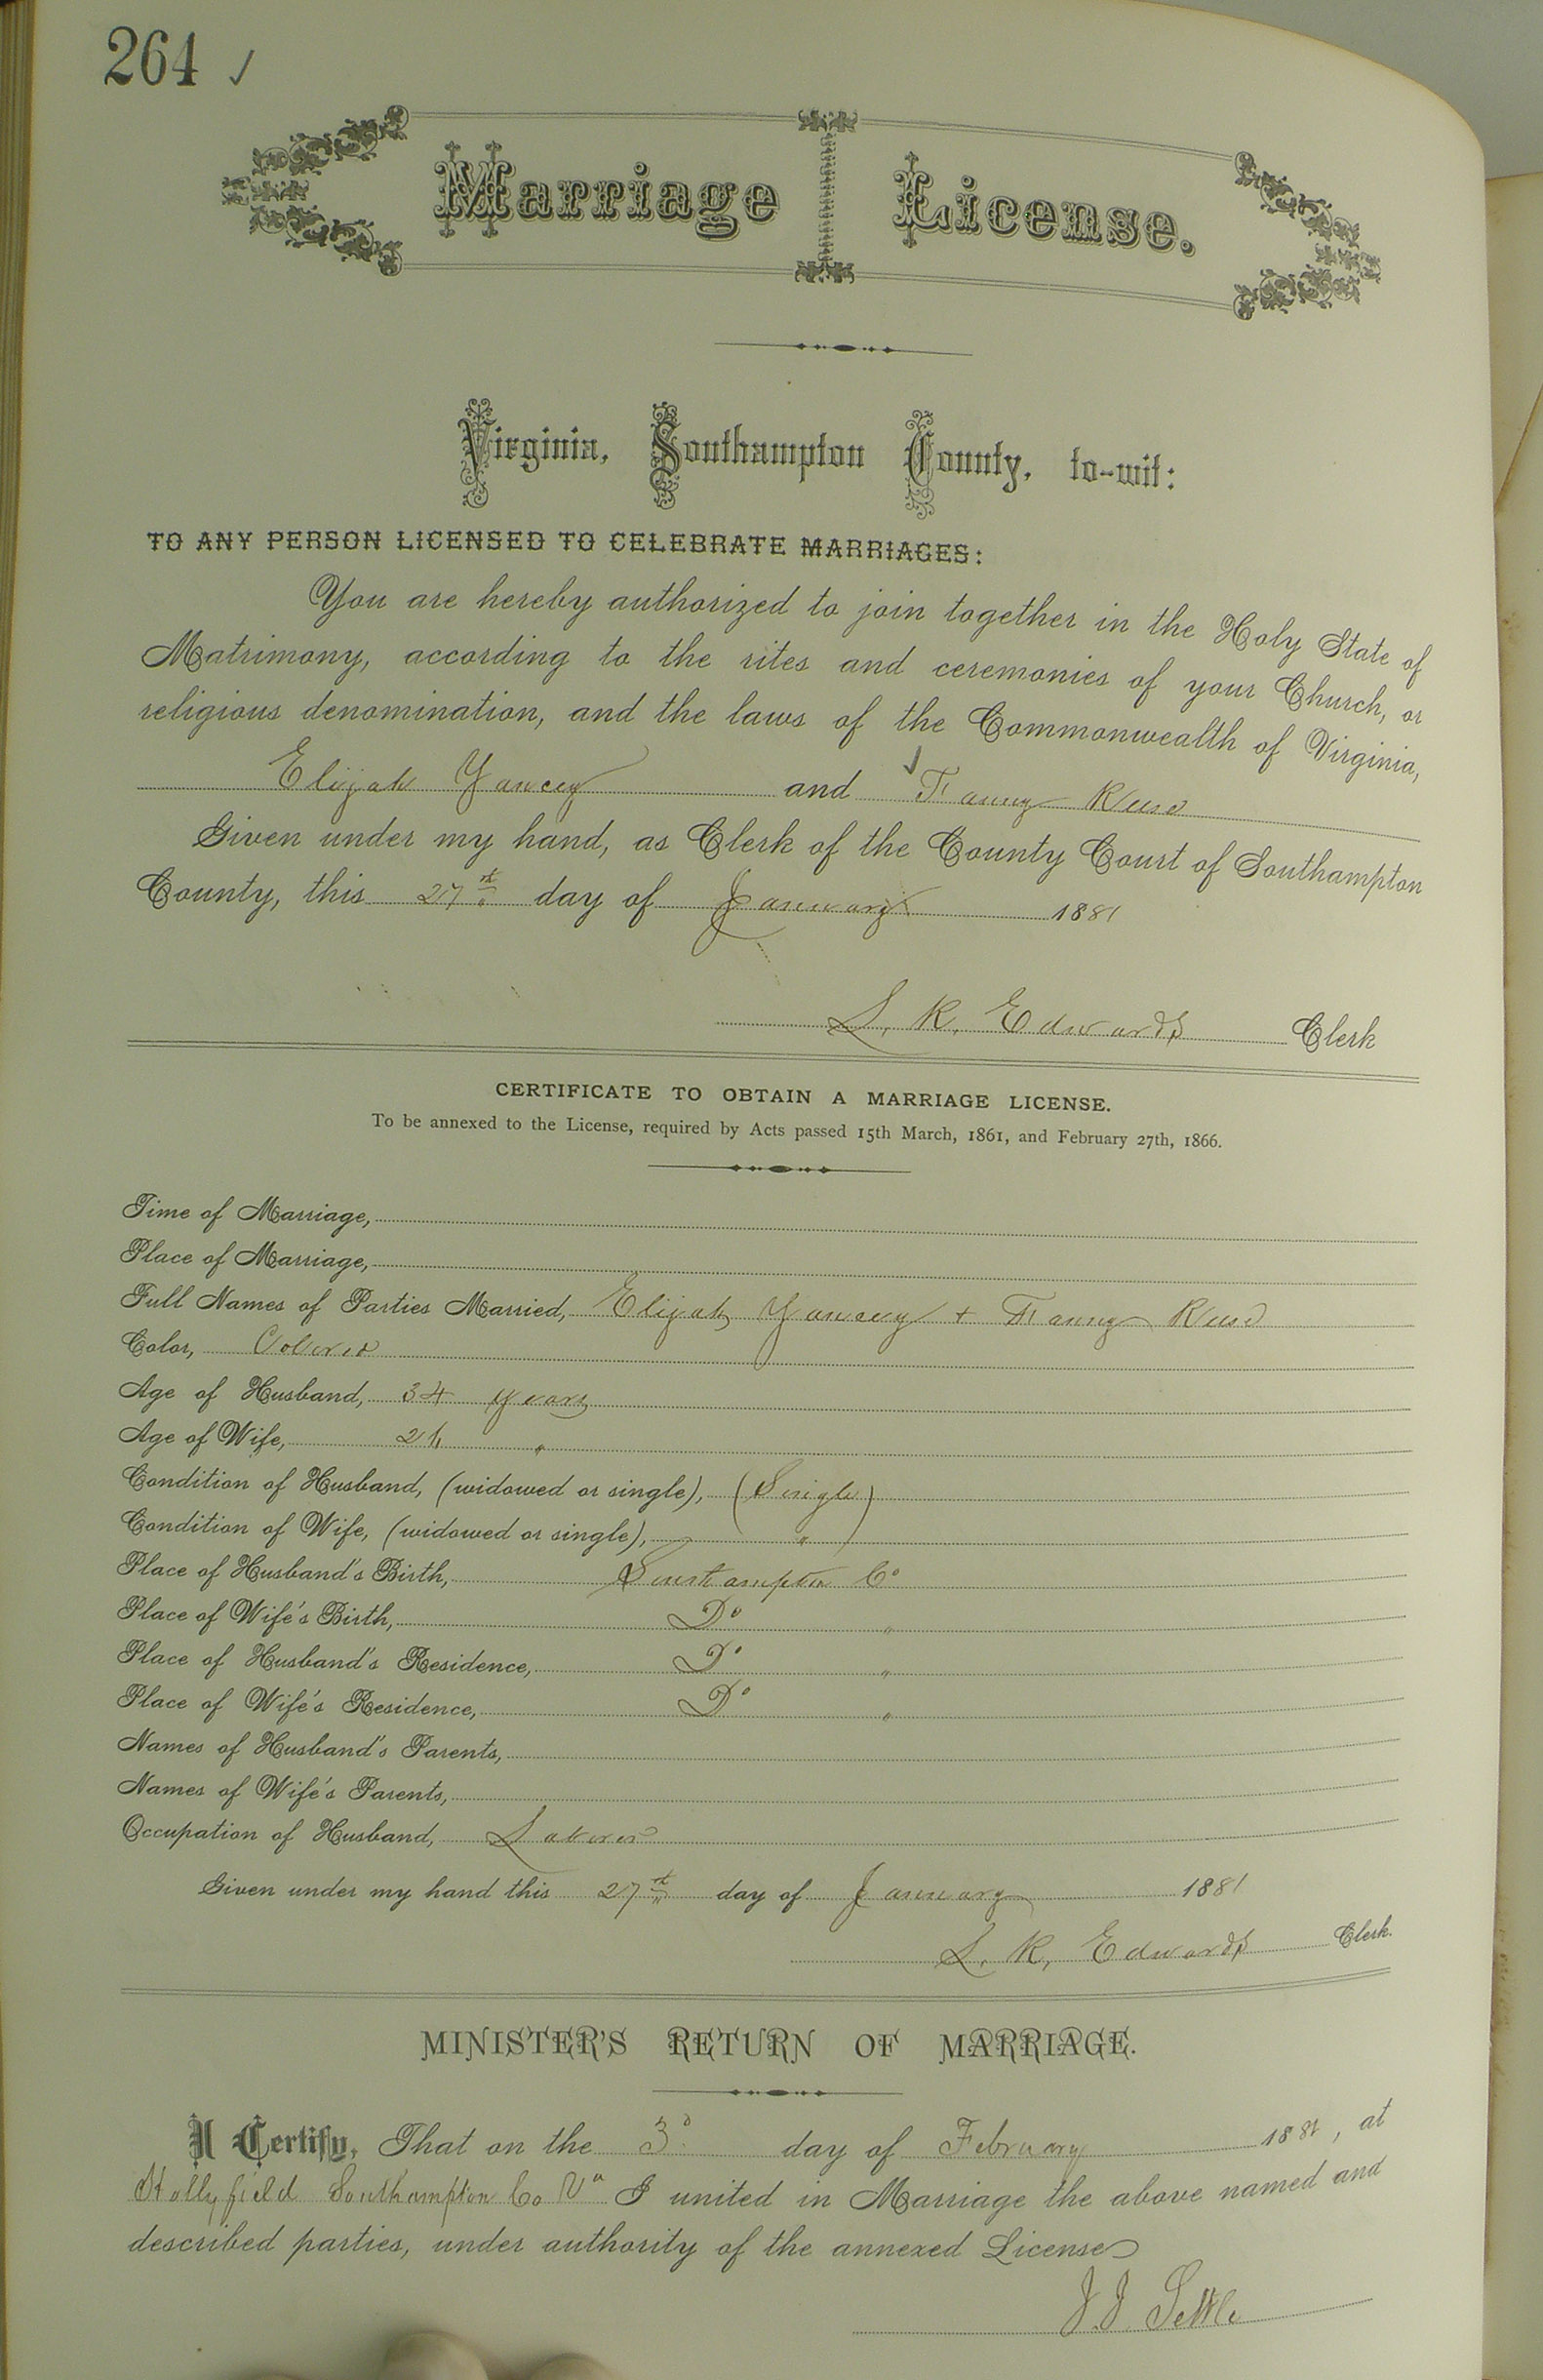 264 ✓
Marriage License.
Virginia, Southampton County, to-wit:
TO ANY PERSON LICENSED TO CELEBRATE MARRIAGES:
You are hereby authorized to join together in the Holy State of
Matrimony, according to the rites and ceremonies of your Church, or
religious denomination, and the laws of the Commonwealth of Virginia,
Elijah Yancey and Fanny
Given under my hand, as Clerk of the County Court of Southampton
County, this 27th day of January 1881
L. R. Edwards Clerk
CERTIFICATE TO OBTAIN A MARRIAGE LICENSE.
To be annexed to the License, required by Acts passed 15th March, 1861, and February 27th, 1866.
Time of Marriage,
Place of Marriage,
Full Names of Parties Married, Elijah Yancey + Fanny
Color, Colored
Age of Husband, 34 years
Age of Wife, "
Condition of Husband, (widowed or single), (Single)
Condition of Wife, (widowed or single), "
Place of Husband's Birth, Southampton Co
Place of Wife's Birth, Do "
Place of Husband's Residence, Do "
Place of Wife's Residence, Do "
Names of Husband's Parents,
Names of Wife's Parents,
Occupation of Husband, Laborer
Given under my hand this 27th day of January 1881
L. R. Edwards Clerk.
MINISTER'S RETURN OF MARRIAGE.
I Certify, That on the 3d day of February 1881, at
Hollyfield Southampton Co Va I united in Marriage the above named and
described parties, under authority of the annexed License
J. J. Settle